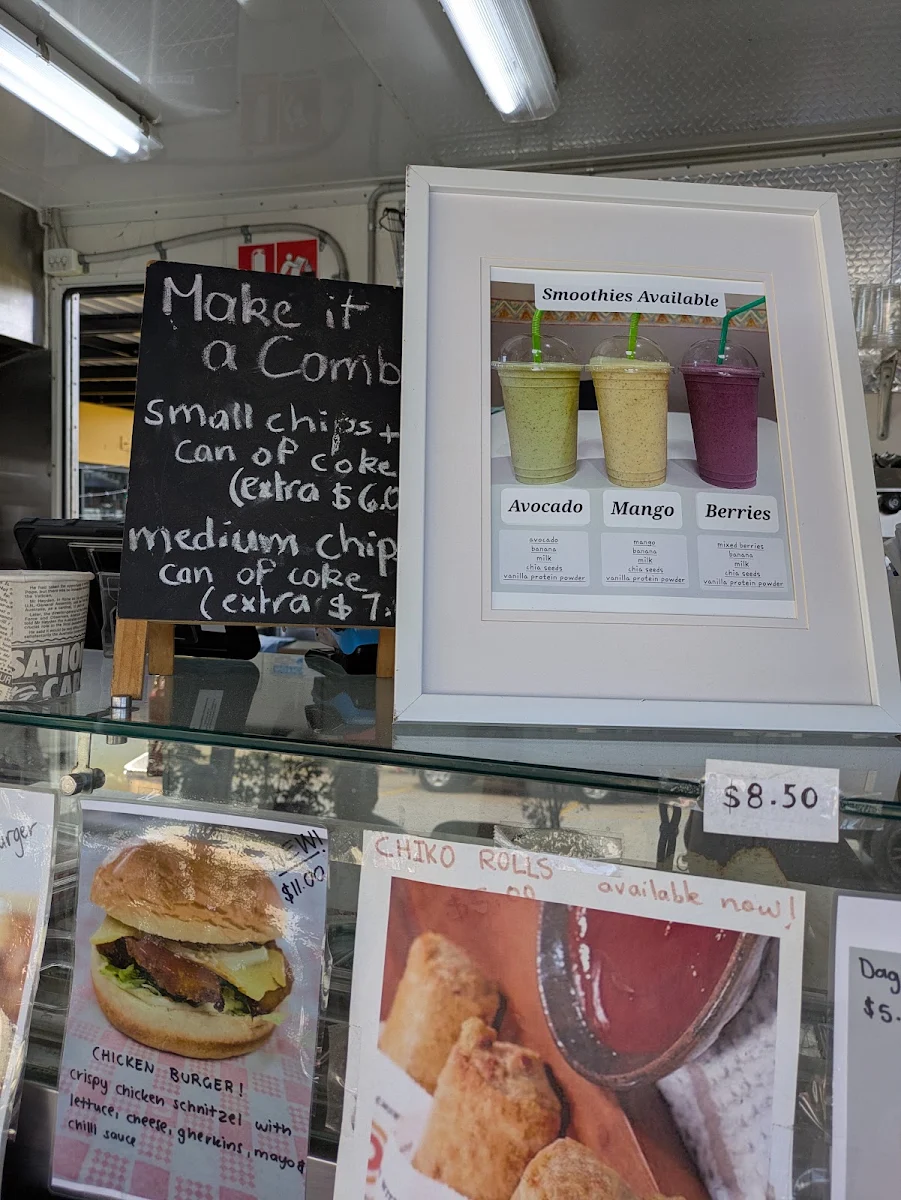 Make it
a Comb
small chips +
can of coke
(extra $6.0
medium chip
can of coke
(extra $7.
Smoothies Available
Avocado
avocado
banana
milk
chia seeds
vanilla protein powder
Mango
mango
banana
milk
chia seeds
vanilla protein powder
Berries
mixed berries
banana
milk
chia seeds
vanilla protein powder
SATIO
$8.50
urger
NEW!
$11.00
CHICKEN BURGER!
crispy chicken schnitzel with
lettuce, cheese, gherkins, mayo &
chilli sauce
CHIKO ROLLS
available now!
Dag
$5.